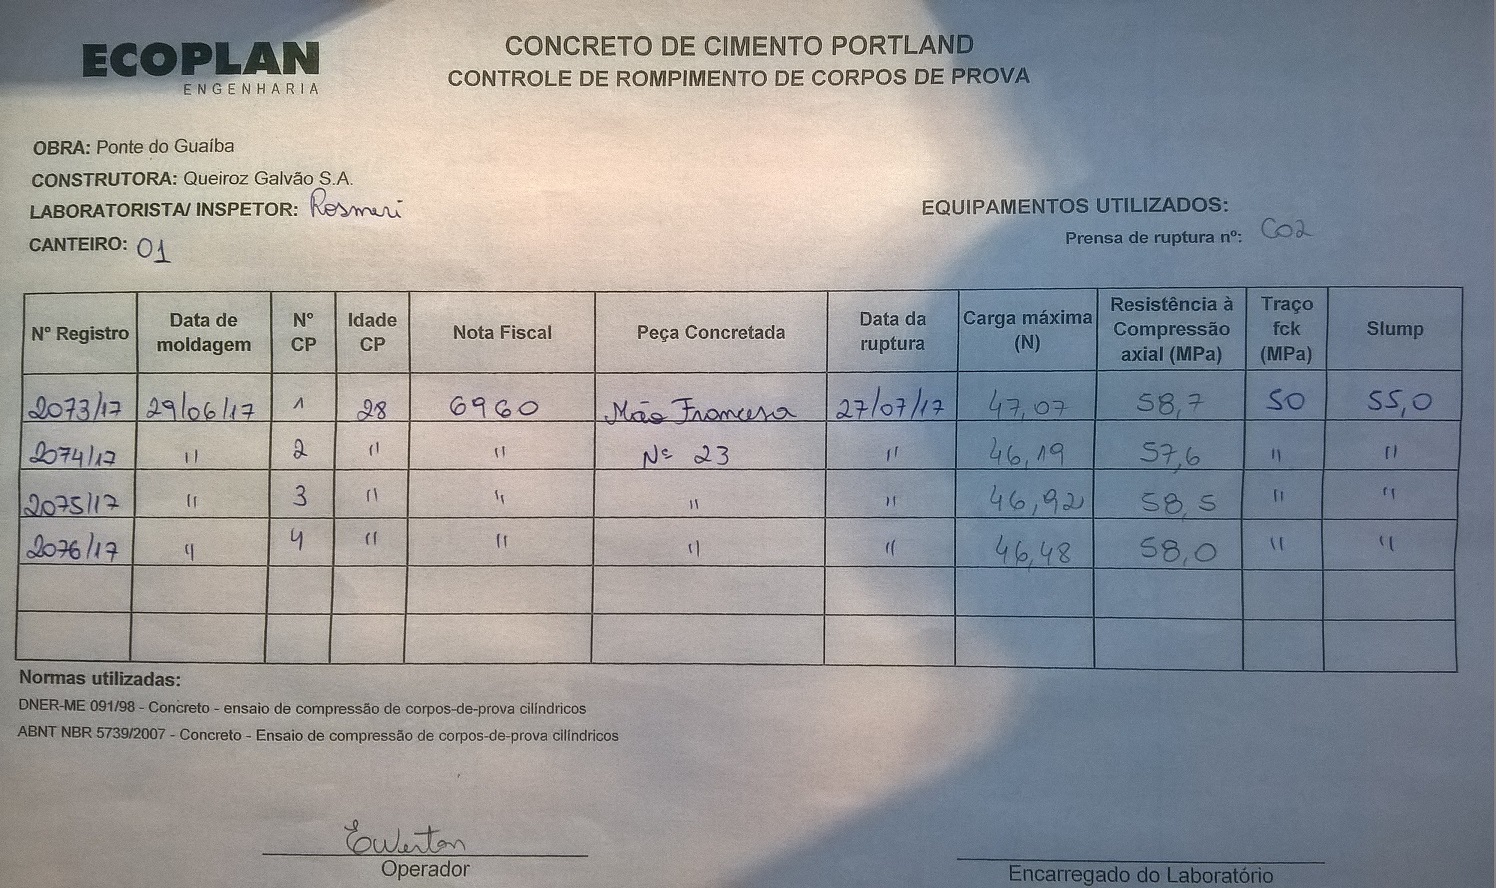 ECOPLAN
ENGENHARIA
CONCRETO DE CIMENTO PORTLAND
CONTROLE DE ROMPIMENTO DE CORPOS DE PROVA
OBRA: Ponte do Guaíba
CONSTRUTORA: Queiroz Galvão S.A.
LABORATORISTA/ INSPETOR: Rosmeri
CANTEIRO: 01
EQUIPAMENTOS UTILIZADOS:
Prensa de ruptura nº: C02
Nº Registro Data de moldagem Nº CP Idade CP Nota Fiscal Peça Concretada Data da ruptura Carga máxima (N) Resistência à Compressão axial (MPa) Traço fck (MPa) Slump
2073/17 29/06/17 1 28 6960 Mão Francesa 27/07/17 47,07 58,7 50 55,0
2074/17 " 2 " " Nº 23 " 46,19 57,6 " "
2075/17 " 3 " " " " 46,92 58,5 " "
2076/17 " 4 " " " " 46,48 58,0 " "
Normas utilizadas:
DNER-ME 091/98 - Concreto - ensaio de compressão de corpos-de-prova cilíndricos
ABNT NBR 5739/2007 - Concreto - Ensaio de compressão de corpos-de-prova cilíndricos
Ewerton
Operador
Encarregado do Laboratório